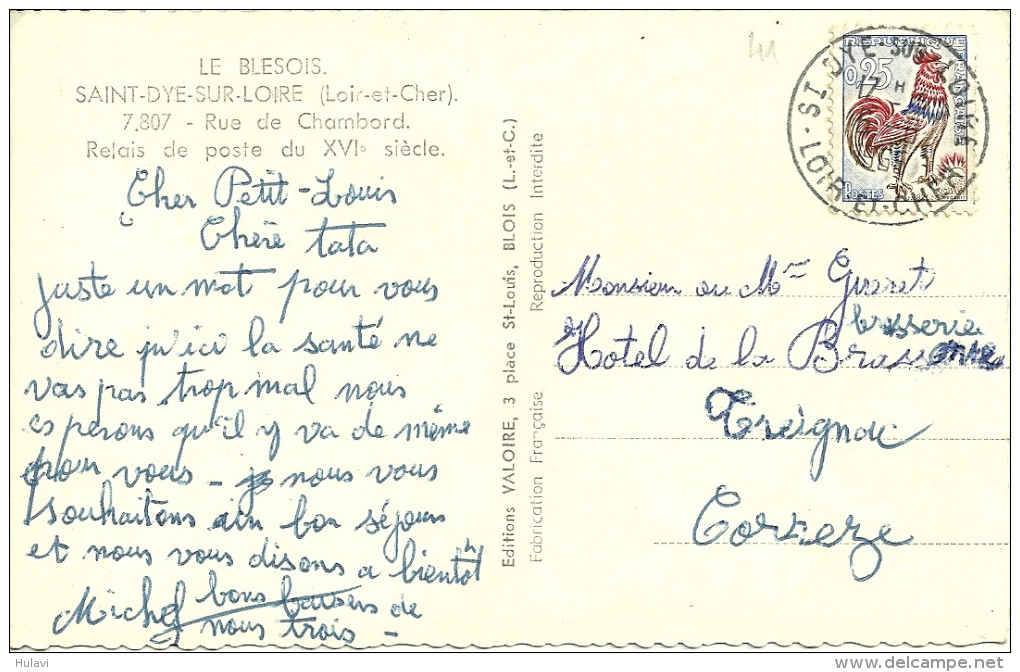 LE BLESOIS.
SAINT-DYE-SUR-LOIRE (Loir-et-Cher).
7.807 - Rue de Chambord.
Relais de poste du XVIe siècle.
Cher Petit-Louis
Chère tata
juste un mot pour vous
dire qu'ici la santé ne
vas pas trop mal nous
esperons qu'il y va de même
pour vous - nous vous
souhaitons un bon séjour
et nous vous disons a bientôt
bons baisers de
Michel nous trois -
Editions VALOIRE, 3 place St-Louis, BLOIS (L.-et-C.)
Fabrication Française
Reproduction Interdite
41
REPUBLIQUE FRANÇAISE
0,25
POSTES
ST DYE SUR LOIRE
LOIR-ET-CHER
17 H
Monsieur ou Mme
brasserie
Hotel de la
Treignac
Correze
Hulavi
delcampe.net